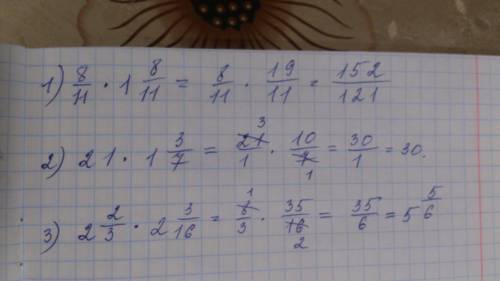 1) 8/11 · 1 8/11 = 8/11 · 19/11 = 152/121
2) 21 · 1 3/7 = 21/1 · 10/7 = 30/1 = 30.
3) 2 2/3 · 2 3/16 = 8/3 · 35/16 = 35/6 = 5 5/6